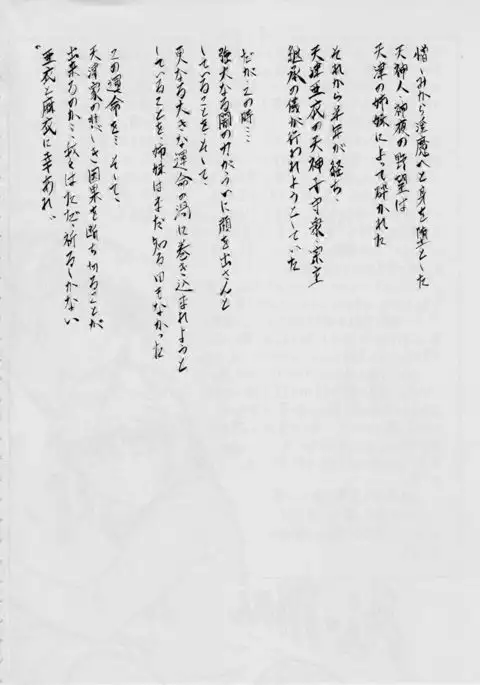 憎しみから淫魔へと身を堕とした
天神人・神夜の野望は
天津の姉妹によって砕かれた
それから半年が経ち、
天津亜衣の天神子守衆・宗主
継承の儀が行われようとしていた
だが、この時…
強大なる闇の力がうかに顔を出さんと
していることを、そして、
更なる大きな運命の渦に巻き込まれようと
していることを、姉妹はまだ知る由もなかった
この運命を…そして、
天津家の悲しき因果を断ち切ることが
出来るのか…我々はただ、祈るしかない
“亜衣と麻衣に幸あれ”